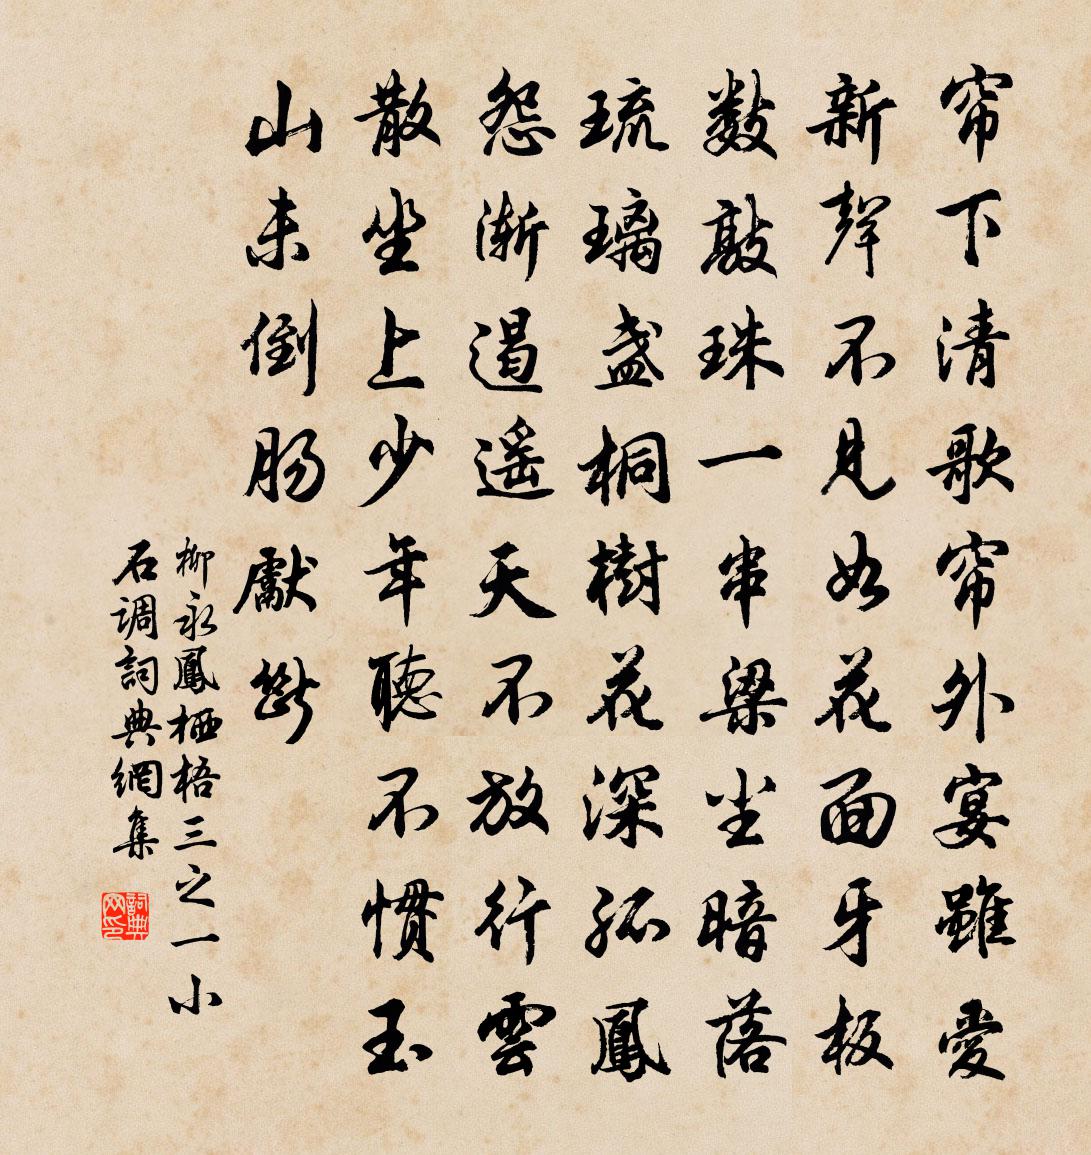 帘下清歌帘外宴雖愛
新聲不見如花面牙板
数敲珠一串梁尘暗落
琉璃盏桐樹花深孤鳳
怨漸遏遥天不放行雲
散坐上少年聽不慣玉
山未倒肠獻斷
柳永鳳栖梧三之一小
石调詞典網集
詞典网印